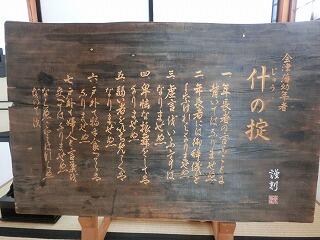 会津藩幼年者
じゅう
什の掟
一 年長者の言ふことに
背いてはなりませぬ
二 年長者には御辞儀を
しなければなりませぬ
三 虚言をいふ事は
なりませぬ
四 卑怯な振舞をしては
なりませぬ
五 弱い者をいぢめては
なりませぬ
六 戸外で物を食べては
なりませぬ
七 戸外で婦人と言葉を
交へてはなりませぬ
謹刻